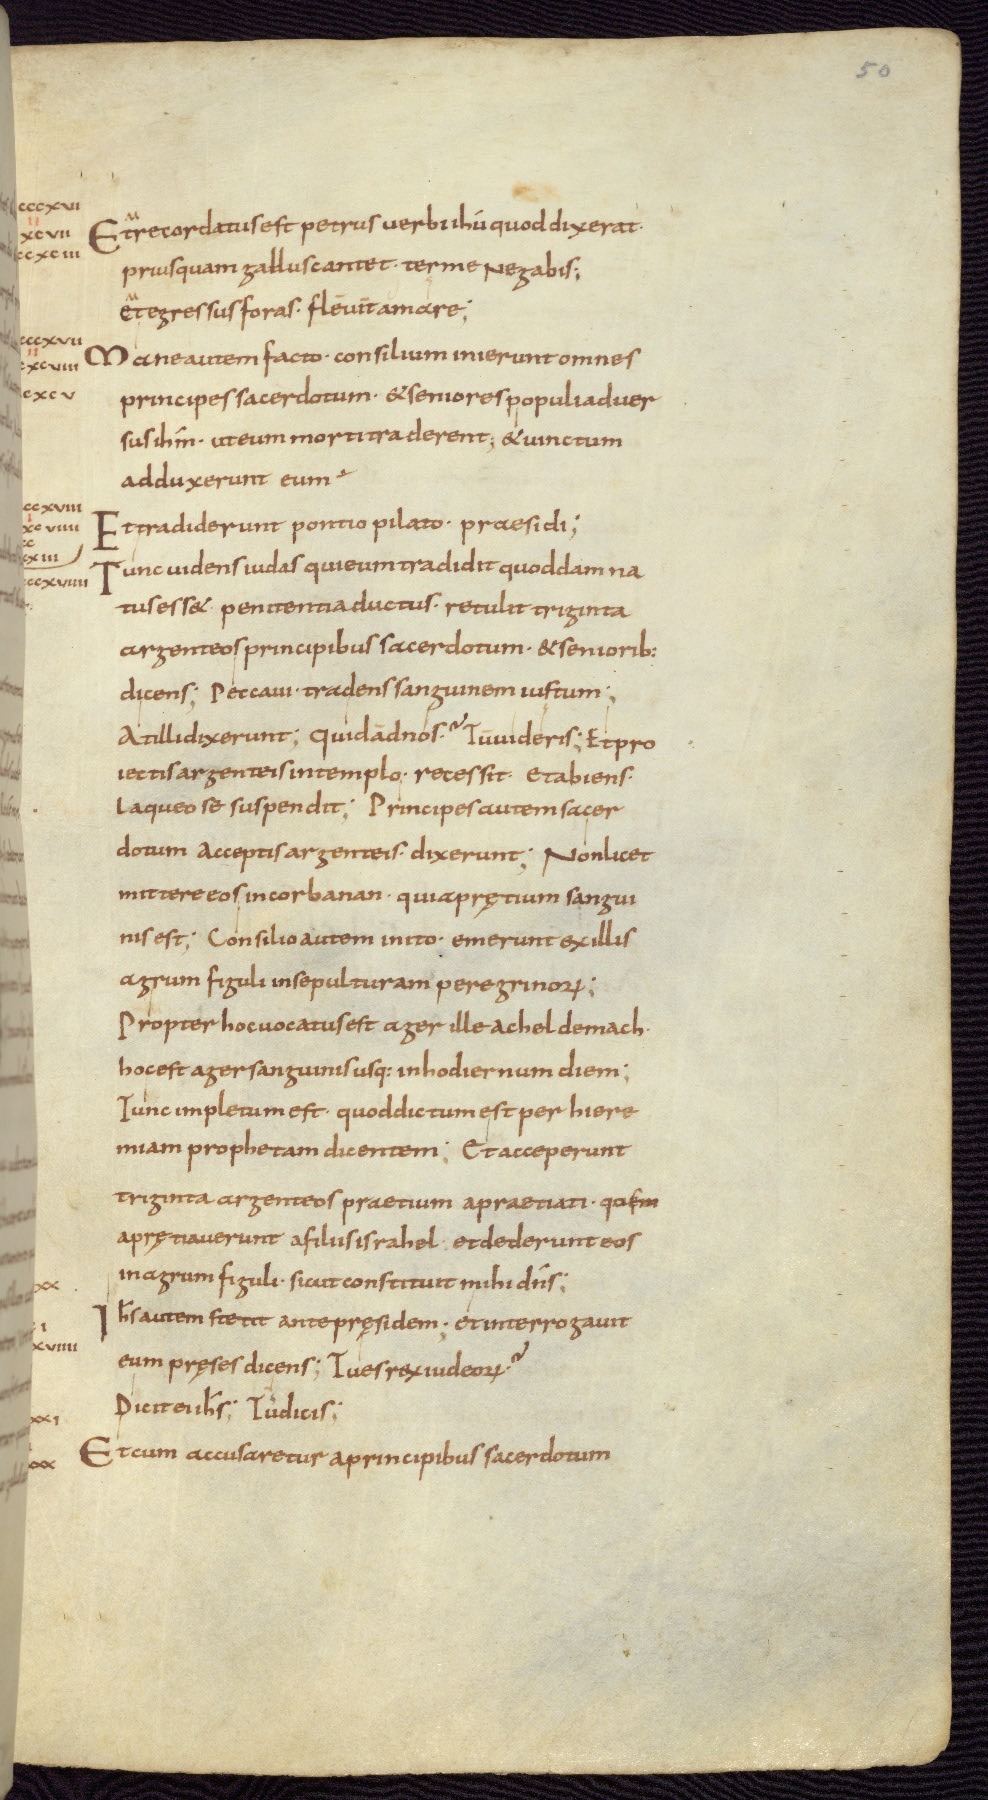 50
cccxvi
II
xcvii
ccxciii
Et recordatus est petrus uerbi ihu quod dixerat·
priusquam gallus cantet· ter me Negabis;
Et egressus foras· fleuit amare;
cccxvii
II
cxcviii
cxcv
Mane autem facto· consilium inierunt omnes
principes sacerdotum· & seniores populi aduer
sus ihm̄· ut eum morti traderent; & uinctum
adduxerunt eum·
ccxviii
xcviiii
cc
cxiii
Et tradiderunt pontio pilato· praesidi;
cccxviiii
Tunc uidens iudas qui eum tradidit quod damna
tus ess&· penitentia ductus· retulit triginta
argenteos principibus sacerdotum· & seniorib:
dicens; Peccaui· tradens sanguinem iustum;
At illi dixerunt; Quid ad nos· Tu uideris; Et pro
iectis argenteis in templo· recessit· et abiens·
laqueo se suspendit; Principes autem sacer
dotum Acceptis argenteis· dixerunt; Non licet
mittere eos in corbanan· quia prętium sangui
nis est; Consilio autem inito· emerunt ex illis
agrum figuli in sepulturam peregrinoꝝ;
Propter hoc uocatus est ager ille acheldemach·
hoc est ager sanguinis usq: in hodiernum diem;
Tunc impletum est· quod dictum est per hiere
miam prophetam dicentem; Et acceperunt
triginta argenteos praetium apraetiati· quem
aprętiauerunt a filiis israhel· et dederunt eos
in agrum figuli· sicut constituit mihi dn̄s;
xx
I
xviiii
Ih̄s autem stetit ante pręsidem; et interrogauit
eum pręses dicens; Tu es rex iudeoꝝ·
Dicit ei ih̄s; Tu dicis;
xxi
xxx
Et cum accusaretur a principibus sacerdotum